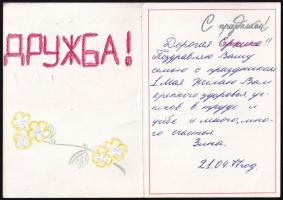 ДРУЖБА!
С праздником!
Дорогая !!
Поздравляю Вашу
семью с праздником
1 Мая Желаю Вам
крепкого здоровья, ус-
пехов в труде и
учёбе и много, мно-
го счастья.
Зина.
21.04.77 год.